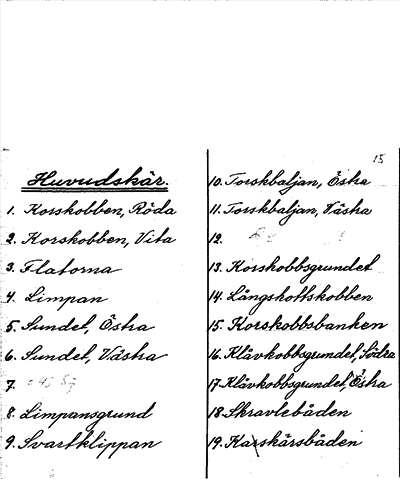 15
Huvudskär.
1. Korskobben, Röda
2. Korskobben, Vita
3. Flatorna
4. Limpan
5. Sundet, Östra
6. Sundet, Västra
7.
8. Limpansgrund
9. Svartklippan
10. Torskbaljan, Östra
11. Torskbaljan, Västra
12.
13. Korskobbsgrundet
14. Långskottskobben
15. Korskobbsbanken
16. Klåvkobbsgrundet, Södra
17. Klåvkobbsgrundet, Östra
18. Skravlebåden
19. Karskärsbåden